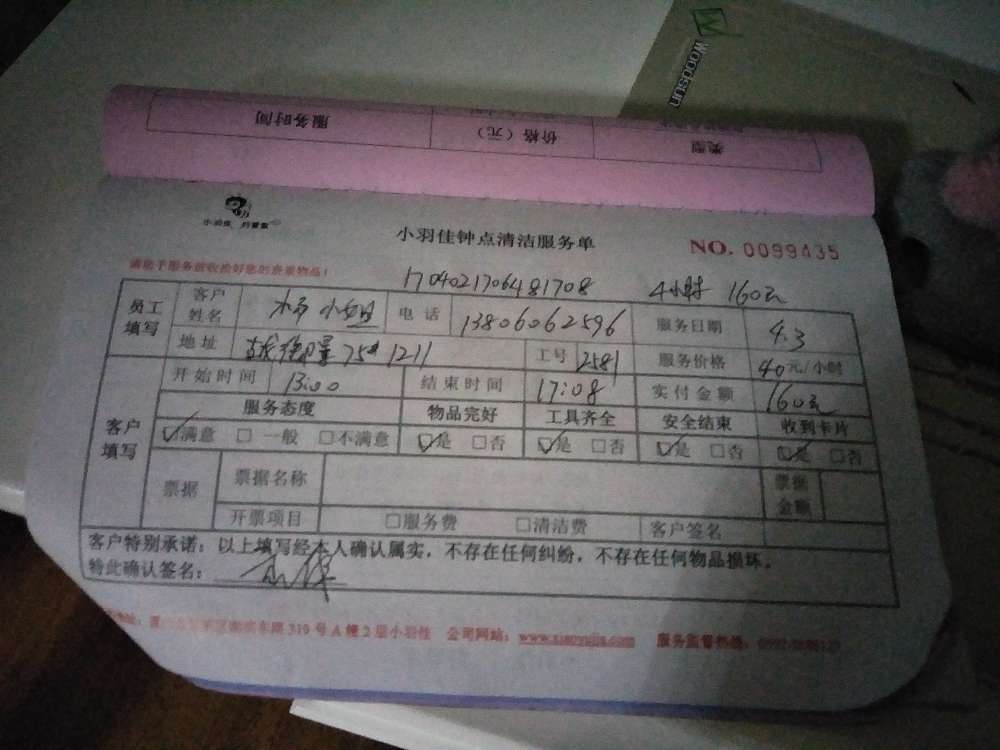 Woodsun
服务时间
价格（元）
类型
小羽佳钟点清洁服务单
NO. 0099435
1704021706481708 4小时 160元
员工填写 客户姓名 小姐 电话 13806062596 服务日期 4.3
地址 75# 1211 工号 2581 服务价格 40元/小时
客户填写 开始时间 13:00 结束时间 17:08 实付金额 160元
服务态度 物品完好 工具齐全 安全结束 收到卡片
☑满意 □一般 □不满意 ☑是 □否 ☑是 □否 ☑是 □否 ☑是 □否
票据 票据名称 票据金额
开票项目 □服务费 □清洁费 客户签名
客户特别承诺：以上填写经本人确认属实，不存在任何纠纷，不存在任何物品损坏。
特此确认签名：
东路319号A幢2层小羽佳 公司网站：www.xiaoyujia.com 服务监督热线：